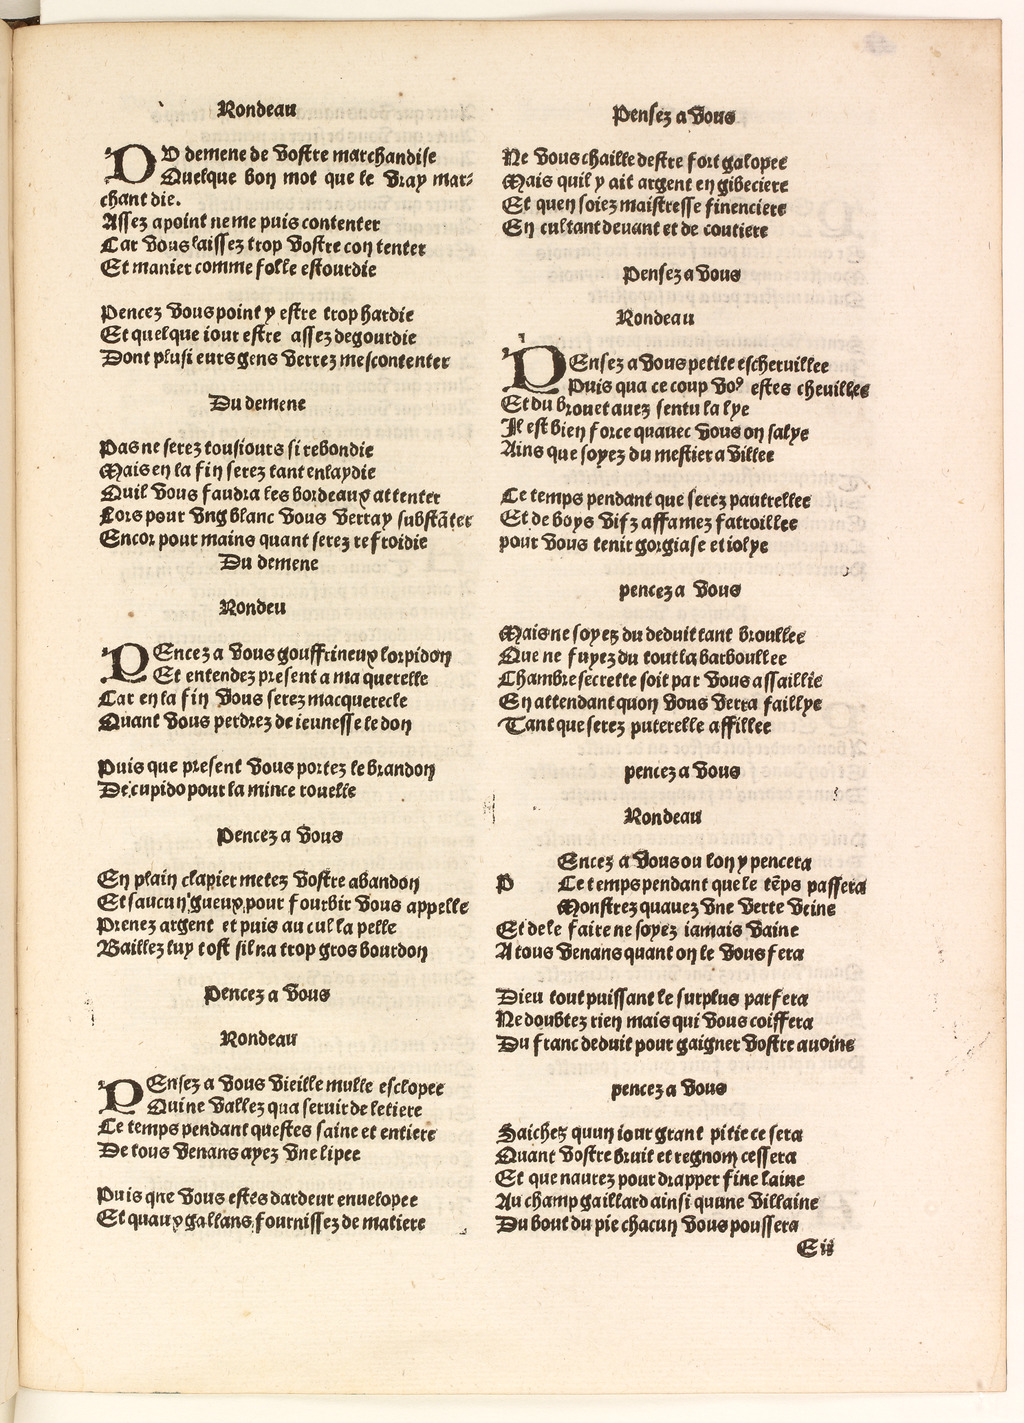 Rondeau
DU demene de vostre marchandise
Quelque bon mot que le vray mar-
chant die.
Assez apoint ne me puis contenter
Car vous laissez trop vostre con tenter
Et manier comme folle estourdie
Pencez vous point y estre trop hardie
Et quelque iour estre assez degourdie
Dont plusi eurs gens verrez mescontenter
Du demene
Pas ne serez tousiours si rebondie
Mais en la fin serez tant enlaydie
Quil vous faudra les bordeaux attenter
Lors pour vng blanc vous verray substãter
Encor pour mains quant serez refroidie
Du demene
Rondeu
PEncez a vous gouffrineux lorpidon
Et entendez present a ma querelle
Car en la fin vous serez macquerelle
Quant vous perdrez de ieunesse le don
Puis que present vous portez le brandon
De cupido pour la mince rouelle
Pencez a vous
En plain clapier metez vostre abandon
Et saucun gueux pour fourbir vous appelle
Prenez argent et puis au cul la pelle
Baillez luy tost sil na trop gros bourdon
Pencez a vous
Rondeau
PEnsez a vous vieille mulle esclopee
Qui ne vallez qua seruir de letiere
Ce temps pendant questes saine et entiere
De tous venans ayez vne lipee
Puis qne vous estes dardeur enuelopee
Et quaux gallans fournissez de matiere
Pensez a vous
Ne vous chaille destre fort galopee
Mais quil y ait argent en gibeciere
Et quen soiez maistresse financiere
En cultant deuant et de coutiere
Pensez a vous
Rondeau
PEnsez a vous petite escheruillee
Puis qua ce coup vo⁹ estes cheuillee
Et du brouet auez sentu la lye
Il est bien force quauec vous on salye
Ains que soyez du mestier a villee
Ce temps pendant que serez pautrellee
Et de boys vifz affamez fatroillee
pour vous tenir gorgiase et iolye
pencez a vous
Mais ne soyez du deduit tant broullee
Que ne fuyez du tout la barboullee
Chambre secrette soit par vous assaillie
En attendant quon vous verra faillye
Tant que serez puterelle affillee
pencez a vous
Rondeau
Encez a vous ou lon y pencera
P Ce temps pendant que le tẽps passera
Monstrez quauez vne verte veine
Et de le faire ne soyez iamais vaine
A tous venans quant on le vous fera
Dieu tout puissant le surplus parfera
Ne doubtez rien mais qui vous coiffera
Du franc deduit pour gaigner vostre auoine
pencez a vous
Saichez quun iour grant pitie ce sera
Quant vostre bruit et regnom cessera
Et que naurez pour drapper fine laine
Au champ gaillard ainsi quune villaine
Du bout du pie chacun vous poussera
E ii